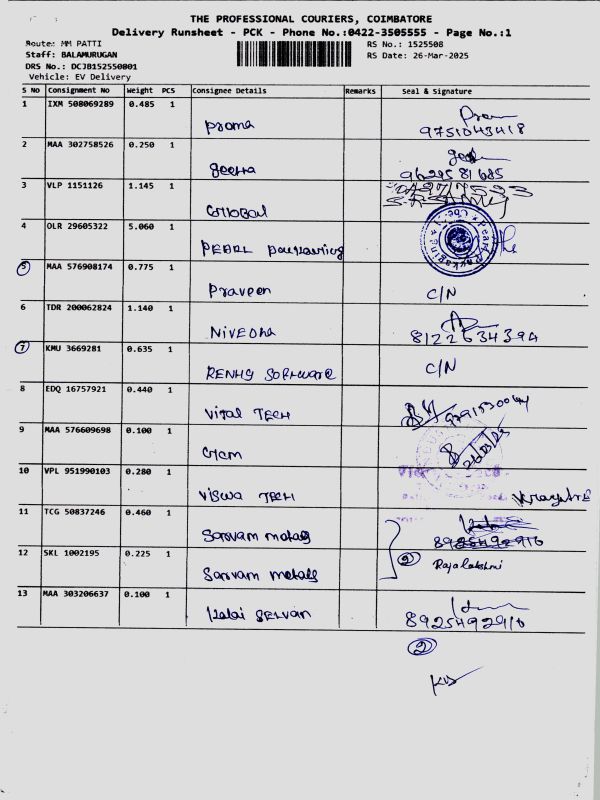 THE PROFESSIONAL COURIERS, COIMBATORE
Delivery Runsheet - PCK - Phone No.:0422-3505555 - Page No.:1
Route: MM PATTI
RS No.: 1525508
Staff: BALAMURUGAN
RS Date: 26-Mar-2025
DRS No.: DCJB152550801
Vehicle: EV Delivery
S No Consignment No Weight PCS Consignee Details Remarks Seal & Signature
1 IXM 508069289 0.485 1
Prema 9751043418
2 MAA 302758526 0.250 1
geetha 9629581685
3 VLP 1151126 1.145 1
4 OLR 29605322 5.060 1
PEARL
5 MAA 576908174 0.775 1
Praveen C/N
6 TDR 200062824 1.140 1
Nivedha 8122634394
7 KMU 3669281 0.635 1
RENHS SOFtware C/N
8 EDQ 16757921 0.440 1
Vital TECH
9 MAA 576609698 0.100 1
10 VPL 951990103 0.280 1
Viswa TECH
11 TCG 50837246 0.460 1
Sarvam metals 8925492916
12 SKL 1002195 0.225 1
Sarvam metals 2 Rajalakshmi
13 MAA 303206637 0.100 1
Kalai SELVAN 8925492916
2